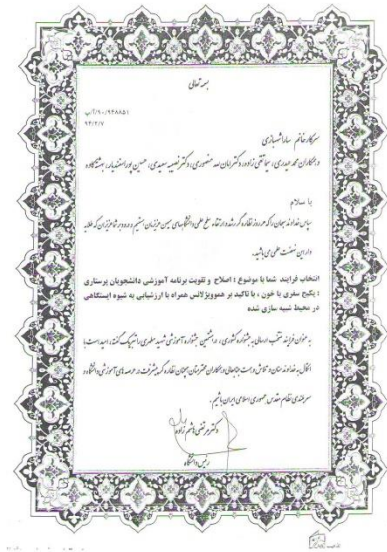 بسمه تعالی
۹۴/۲/۷
سرکار خانم سارا شهبازی
با سلام
سپاس خداوند سبحان را که هر روز نظاره گر رشد و ارتقاء سطح علمی دانشگاههای میهن عزیزمان هستیم و درود بر شما عزیزان که طلایه
دار این نهضت علمی می باشید.
انتخاب فرایند شما با موضوع : اصلاح و تقویت برنامه آموزشی دانشجویان پرستاری
: پکیج سفری با خون ، با تاکید بر هموویژلانس همراه با ارزشیابی به شیوه ایستگاهی
در محیط شبیه سازی شده
به عنوان فرایند منتخب ارسالی به جشنواره کشوری، در هشتمین جشنواره آموزشی شهید مطهری را تبریک گفته، امید است با
اتکال به خداوند منان و تلاش و همکاران محترمتان همچنان نظاره گر پیشرفت در عرصه های آموزشی دانشگاه و
سربلندی نظام مقدس جمهوری اسلامی ایران باشیم.
دکتر مرتضی هاشم زاده
رئیس دانشگاه